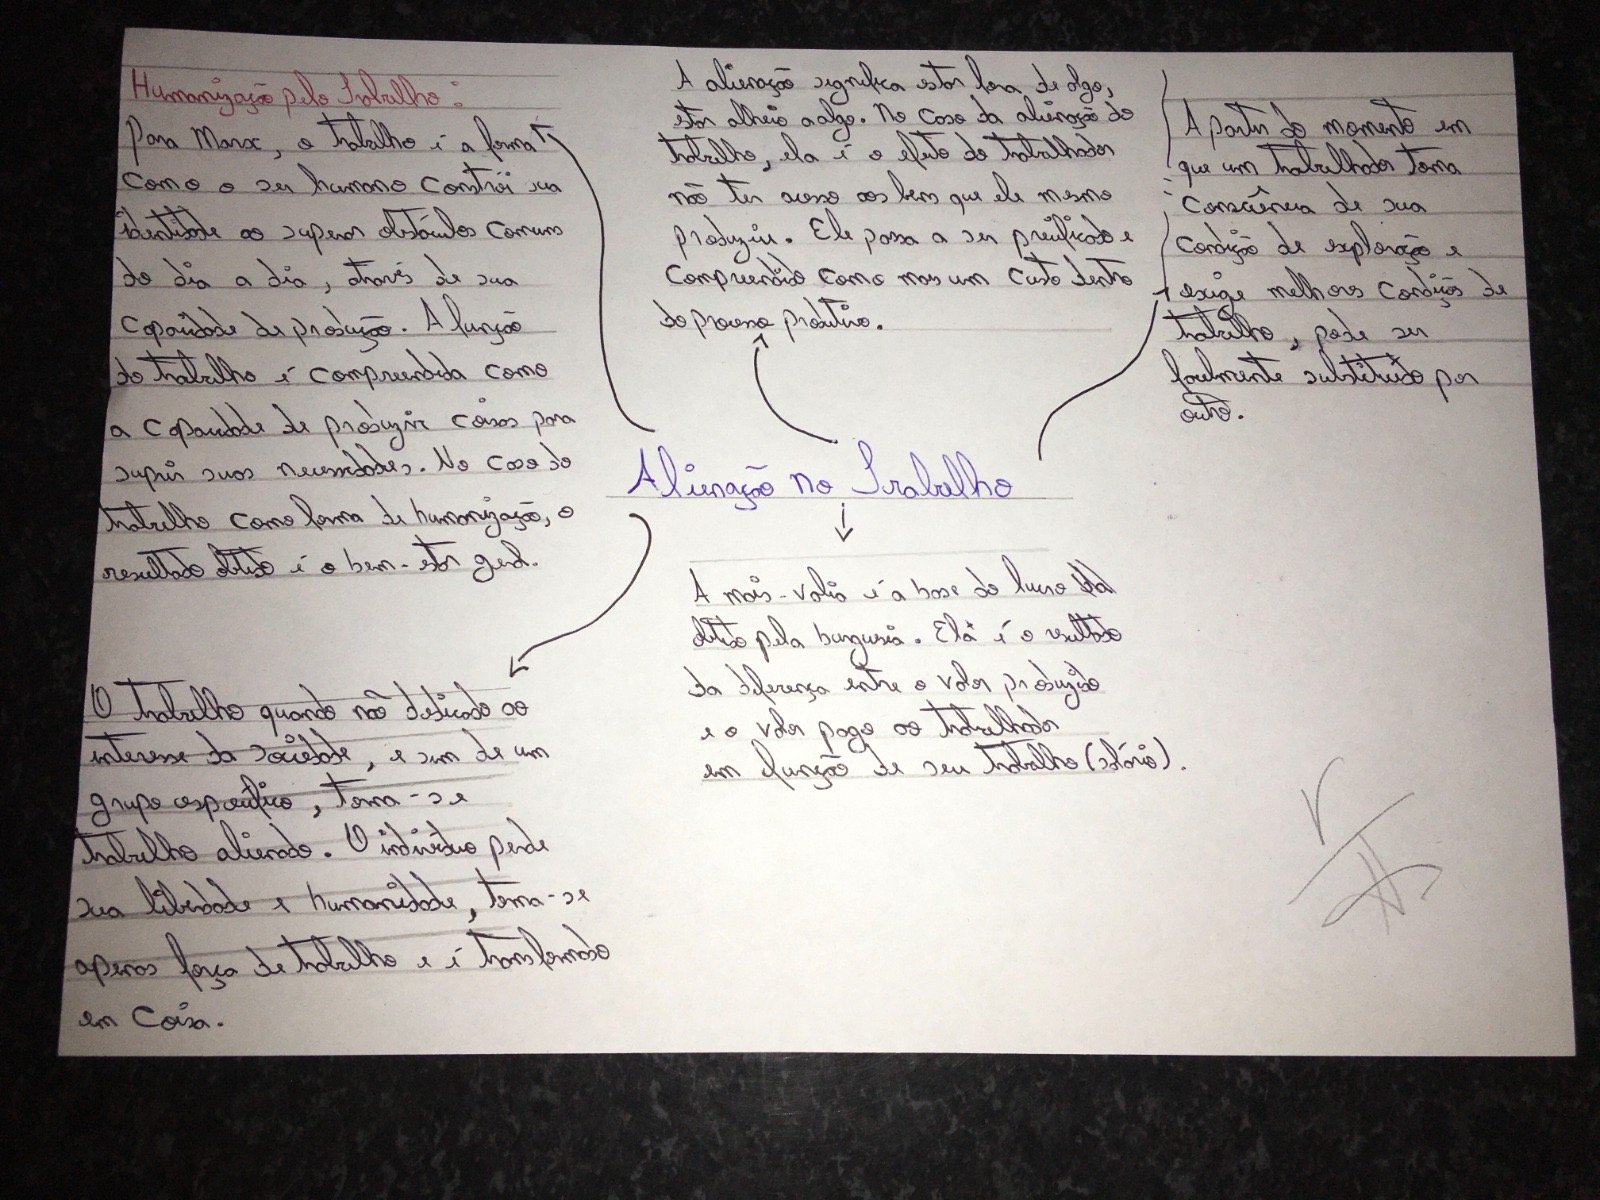 Humanização pelo Trabalho:
Para Marx, o trabalho é a forma
como o ser humano constrói sua
identidade ao superar obstáculos comuns
do dia a dia, através de sua
capacidade de produção. A função
do trabalho é compreendida como
a capacidade de produzir coisas para
suprir suas necessidades. No caso do
trabalho como forma de humanização, o
resultado obtido é o bem-estar geral.
A alienação significa estar fora de algo,
estar alheio a algo. No caso da alienação do
trabalho, ela é o efeito do trabalhador
não ter acesso aos bens que ele mesmo
produziu. Ele passa a ser precificado e
compreendido como mais um custo dentro
do processo produtivo.
A partir do momento em
que um trabalhador toma
consciência de sua
condição de exploração e
exige melhores condições de
trabalho, pode ser
facilmente substituído por
outro.
Alienação no Trabalho
O trabalho quando não dedicado ao
interesse da sociedade, e sim de um
grupo específico, torna-se
trabalho alienado. O indivíduo perde
sua liberdade e humanidade, torna-se
apenas força de trabalho e é transformado
em coisa.
A mais-valia é a base do lucro
obtido pela burguesia. Ela é o resultado
da diferença entre o valor produzido
e o valor pago ao trabalhador
em função de seu trabalho (salário).